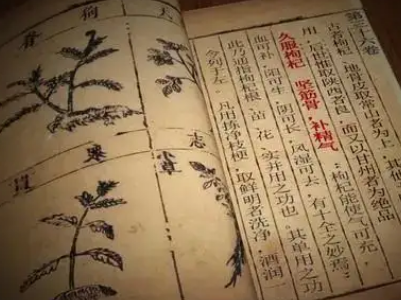 第三十六卷
古者枸杞、地骨皮取常山者为上，其他
用，后世惟取陕西者良，而又以甘州者为绝品
久服枸杞 坚筋骨，补精气，枸杞能使气可充，
血可补，阳可生，阴可长，风湿可去，有十全之妙焉；
此乃通指枸杞根、苗、花、实并用之功也。其单用之功
今列于左。凡用拣净枝梗，取鲜明者洗净，酒润一
志
小草